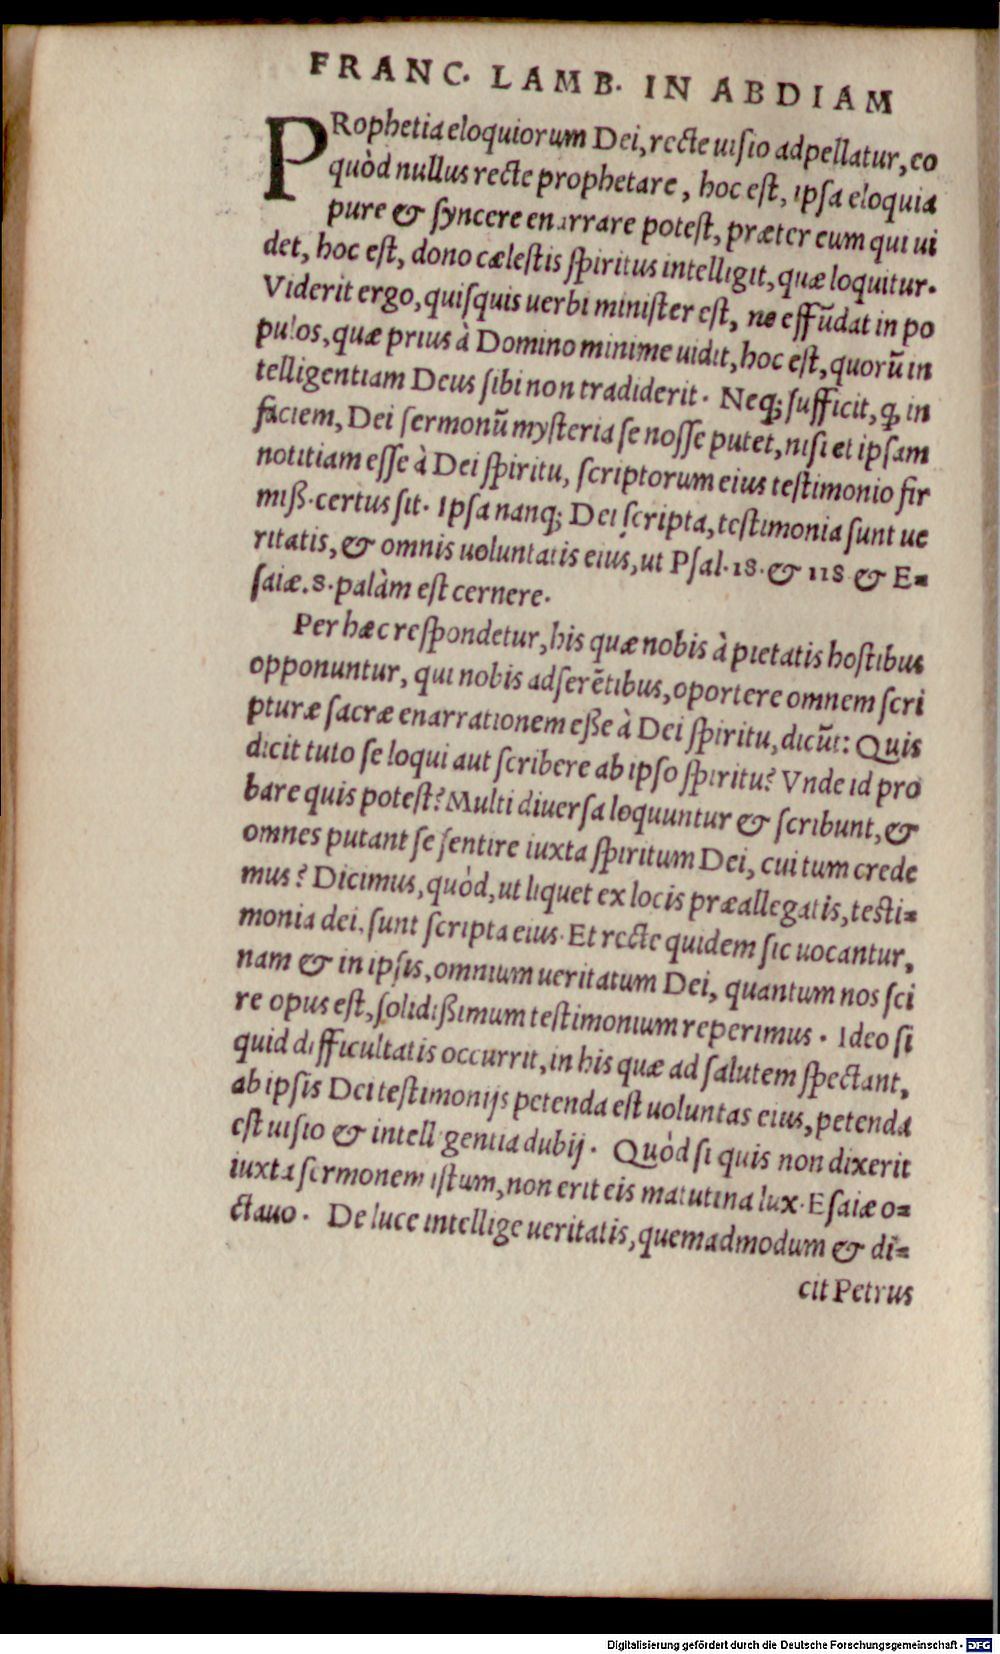 FRANC. LAMB. IN ABDIAM
PRophetia eloquiorum Dei, recte uisio adpellatur, eo
quòd nullus recte prophetare, hoc est, ipsa eloquia
pure & syncere enarrare potest, præter eum qui ui
det, hoc est, dono cælestis spiritus intelligit, quæ loquitur.
Viderit ergo, quisquis uerbi minister est, ne effũdat in po
pulos, quæ prius à Domino minime uidit, hoc est, quorũ in
telligentiam Deus sibi non tradiderit. Neq; sufficit, ꝙ in
faciem, Dei sermonũ mysteria se nosse putet, nisi et ipsam
notitiam esse à Dei spiritu, scriptorum eius testimonio fir
miß. certus sit. Ipsa nanq; Dei scripta, testimonia sunt ue
ritatis, & omnis uoluntatis eius, ut Psal. 18. & 118 & E=
saiæ. 8. palàm est cernere.
Per hæc respondetur, his quæ nobis à pietatis hostibus
opponuntur, qui nobis adserẽtibus, oportere omnem scri
pturæ sacræ enarrationem eße à Dei spiritu, dicũt: Quis
dicit tuto se loqui aut scribere ab ipso spiritu? Vnde id pro
bare quis potest? Multi diuersa loquuntur & scribunt, &
omnes putant se sentire iuxta spiritum Dei, cui tum crede
mus? Dicimus, quòd, ut liquet ex locis præallegatis, testi=
monia dei, sunt scripta eius. Et recte quidem sic uocantur,
nam & in ipsis, omnium ueritatum Dei, quantum nos sci
re opus est, solidißimum testimonium reperimus. Ideo si
quid difficultatis occurrit, in his quæ ad salutem spectant,
ab ipsis Dei testimonijs petenda est uoluntas eius, petenda
est uisio & intelligentia dubij. Quòd si quis non dixerit
iuxta sermonem istum, non erit eis matutina lux. Esaiæ o=
ctauo. De luce intellige ueritatis, quemadmodum & di=
cit Petrus
Digitalisierung gefördert durch die Deutsche Forschungsgemeinschaft - DFG